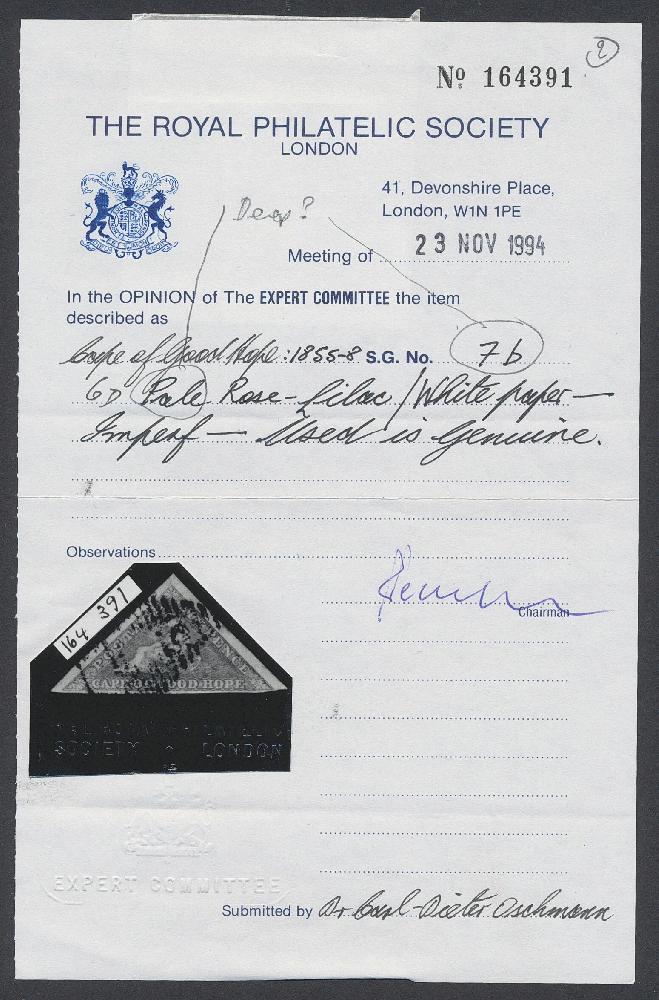 2
No 164391
THE ROYAL PHILATELIC SOCIETY
LONDON
41, Devonshire Place,
London, W1N 1PE
Deep?
Meeting of 23 NOV 1994
In the OPINION of The EXPERT COMMITTEE the item
described as
Cape of Good Hope: 1855-8 S.G. No. 7b
6D Pale Rose-Lilac / White paper —
Imperf — Used is Genuine.
Observations
Chairman
164 391
PENCE
CAPE OF GOOD HOPE
SOCIETY LONDON
EXPERT COMMITTEE
Submitted by Dr Carl-Dieter Oschmann